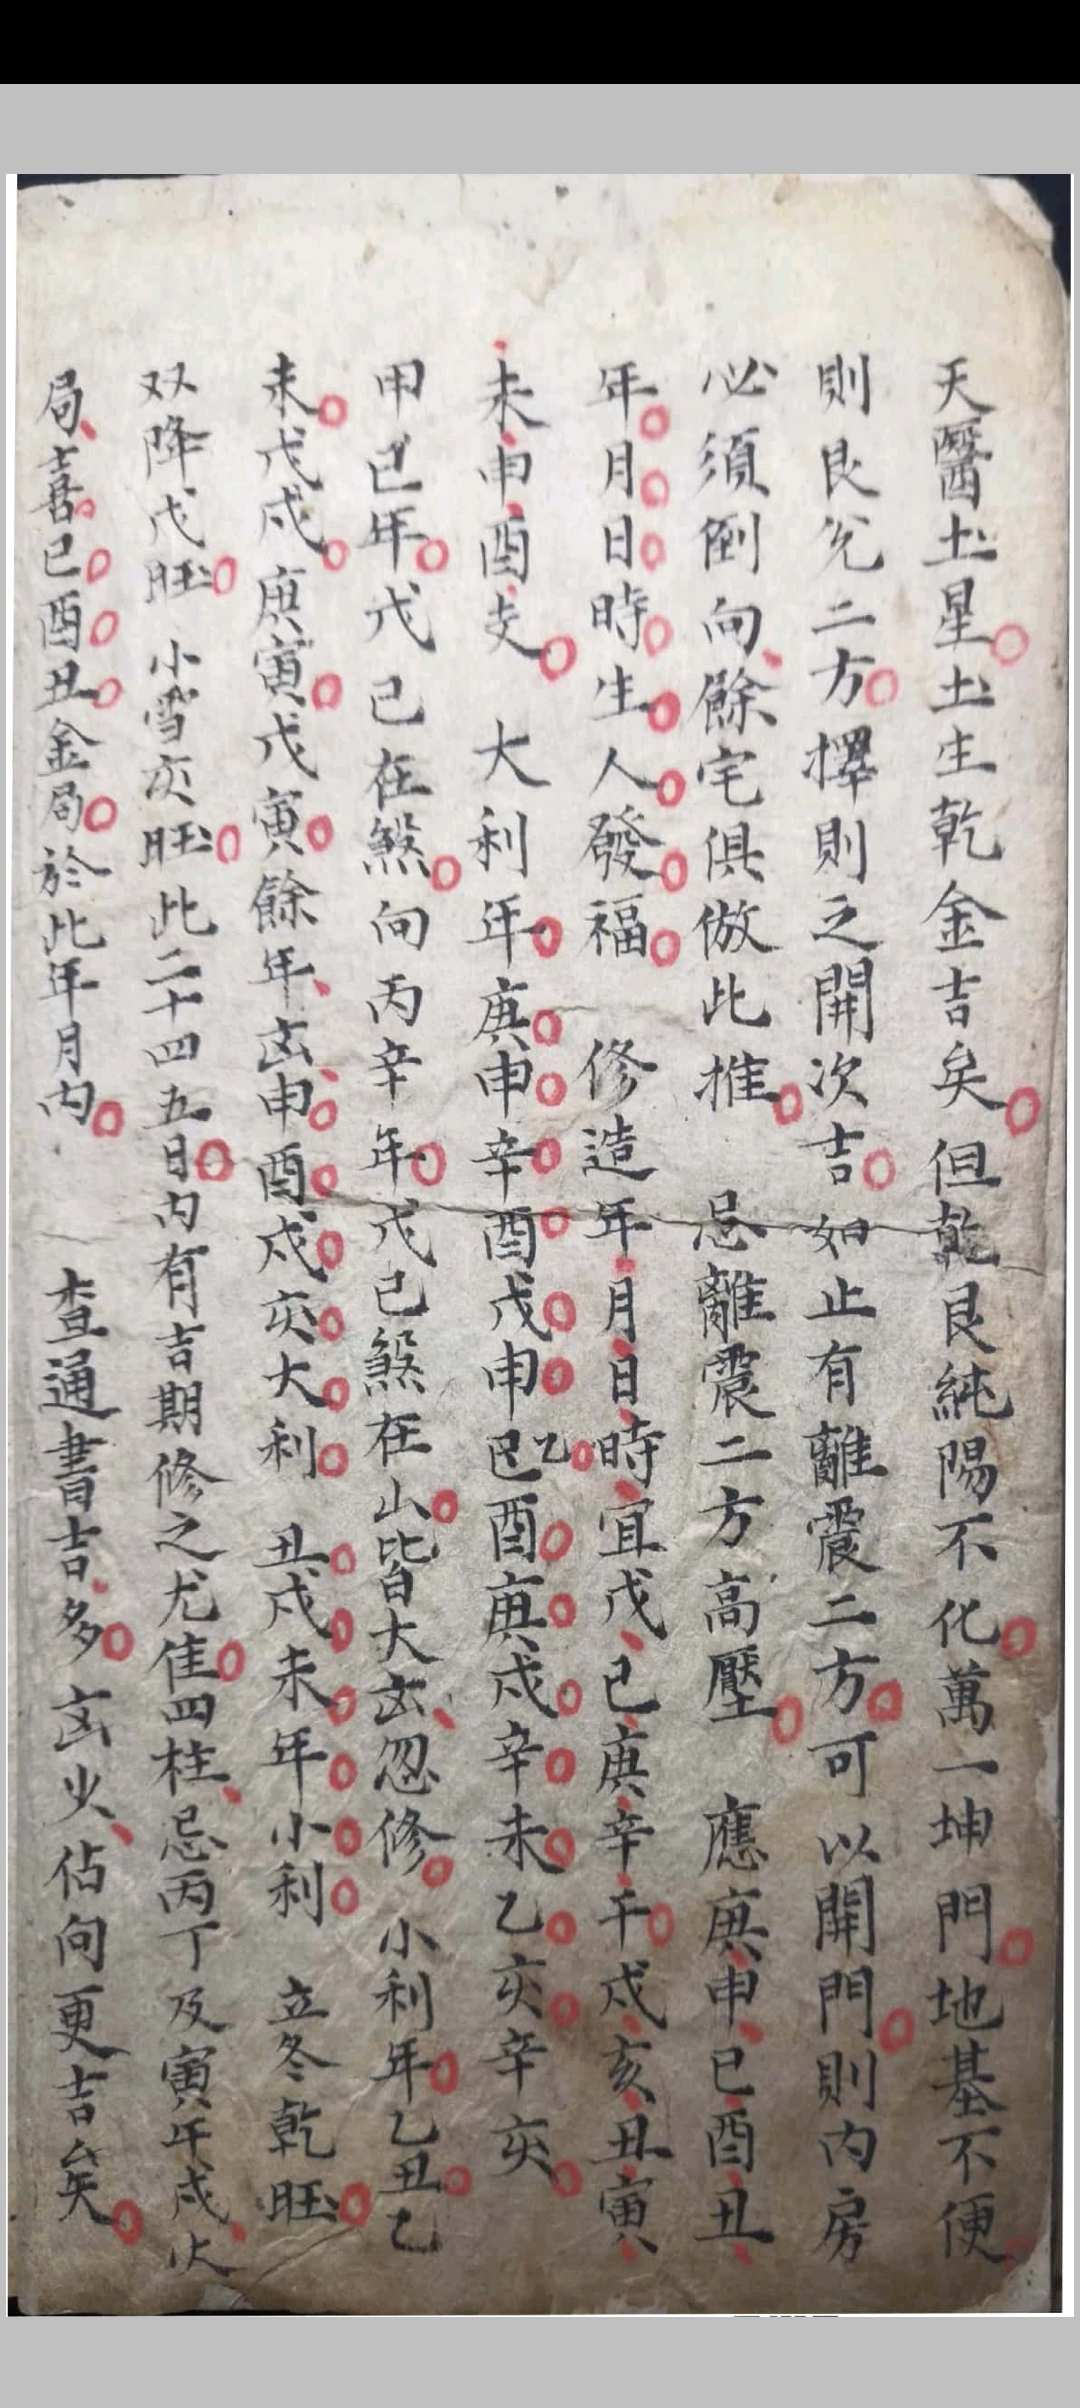 天醫土星土生乾金吉矣但乾艮純陽不化萬一坤門地基不便
則艮兌二方擇則之開次吉如止有離震二方可以開門則內房
必須倒向餘宅俱倣此推 忌離震二方高壓 應庚申巳酉丑
年月日時生人發福 修造年月日時宜戊己庚辛干戌亥丑寅
未申酉支 大利年庚申辛酉戊申乙巳酉庚戌辛未乙亥辛亥
甲巳年戊己在煞向丙辛年戊己煞在山皆大凶忽修 小利年乙丑乙
未戊戌庚寅戊寅餘年凶申酉戌亥大利 丑戌未年小利 立冬乾旺
双降戊旺 小雪亥旺此二十四五日內有吉期修之尤佳四柱忌丙丁及寅午戌火
局喜巳酉丑金局於此年月內 查通書吉多凶少佔向更吉矣